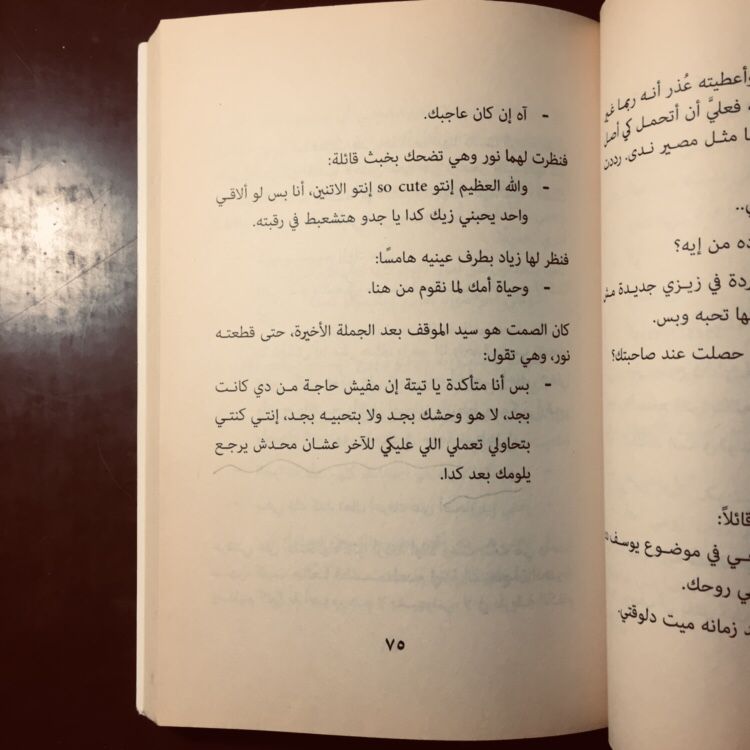 وأعطيته عُذر أنه ربما
فعليَّ أن أتحمل كي أصل
مثل مصير ندى. رددن
ده من إيه؟
ردة في زيزي جديدة مش
ها تحبه وبس.
حصلت عند صاحبتك؟
قائلاً:
في موضوع يوسف
روحك.
زمانه ميت دلوقتي.
- آه إن كان عاجبك.
فنظرت لهما نور وهي تضحك بخبث قائلة:
- والله العظيم إنتو so cute إنتو الاتنين، أنا بس لو ألاقي
واحد يحبني زيك كدا يا جدو هتشعبط في رقبته.
فنظر لها زياد بطرف عينيه هامسًا:
- وحياة أمك لما نقوم من هنا.
كان الصمت هو سيد الموقف بعد الجملة الأخيرة، حتى قطعته
نور، وهي تقول:
- بس أنا متأكدة يا تيتة إن مفيش حاجة من دي كانت
بجد، لا هو وحشك بجد ولا بتحبيه بجد، إنتي كنتي
بتحاولي تعملي اللي عليكي للآخر عشان محدش يرجع
يلومك بعد كدا.
٧٥